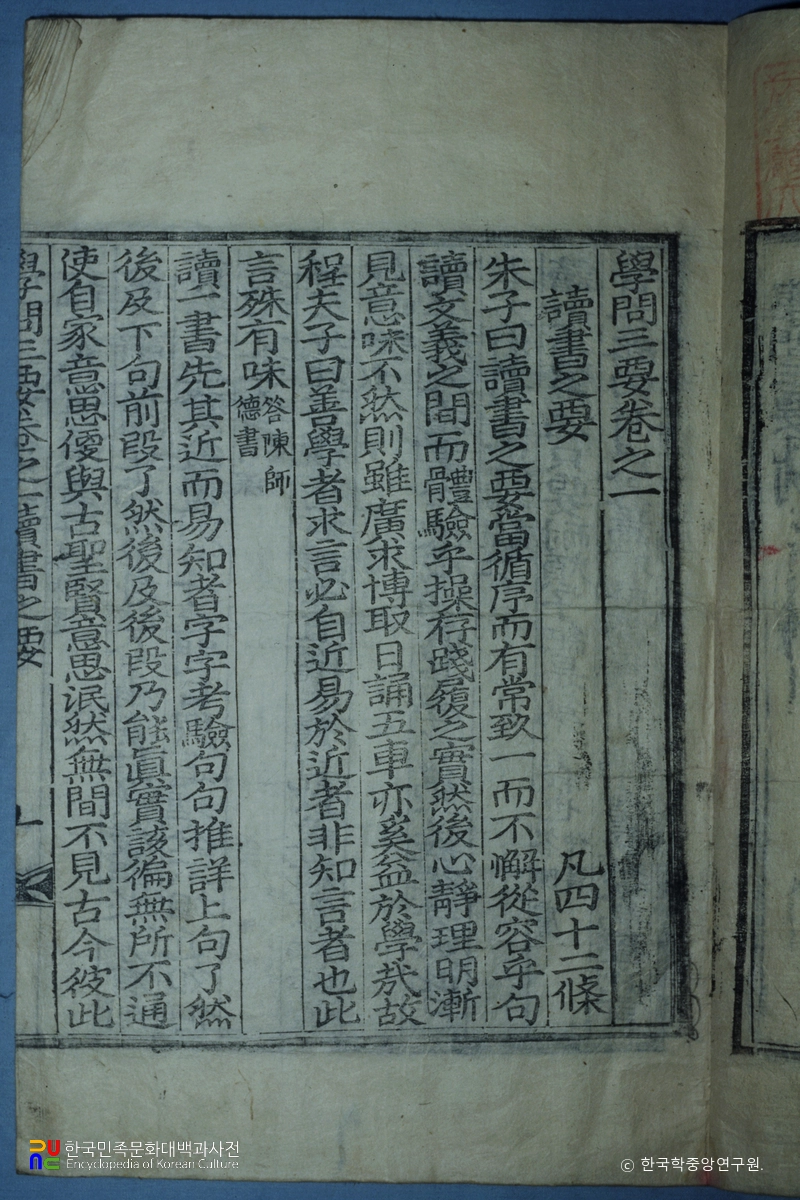 學問三要卷之一
讀書之要
凡四十二條
朱子曰讀書之要當循序而有常致一而不懈從容乎句
讀文義之間而體驗乎操存踐履之實然後心靜理明漸
見意味不然則雖廣求博取日誦五車亦奚益於學㢤故
程夫子曰善學者求言必自近易於近者非知言者也此
言殊有味
答陳師
德書
讀一書先其近而易知者字字考驗句句推詳上句了然
後及下句前段了然後及後段乃能眞實該徧無所不通
使自家意思便與古聖賢意思泯然無間不見古今彼此
學問三要卷之一讀書之要
一
PUNC 한국민족문화대백과사전
Encyclopedia of Korean Culture
© 한국학중앙연구원.